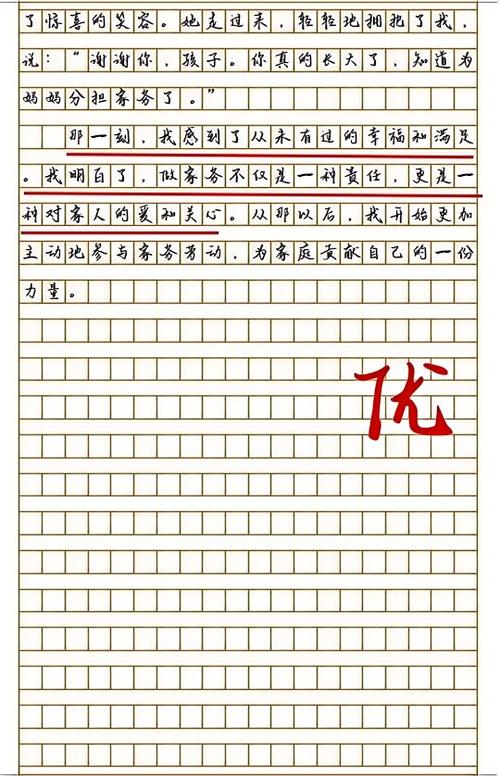 了惊喜的笑容。她走过来，轻轻地拥抱了我，
说：“谢谢你，孩子。你真的长大了，知道为
妈妈分担家务了。”
那一刻，我感到了从未有过的幸福和满足
。我明白了，做家务不仅是一种责任，更是一
种对家人的爱和关心。从那以后，我开始更加
主动地参与家务劳动，为家庭贡献自己的一份
力量。
优